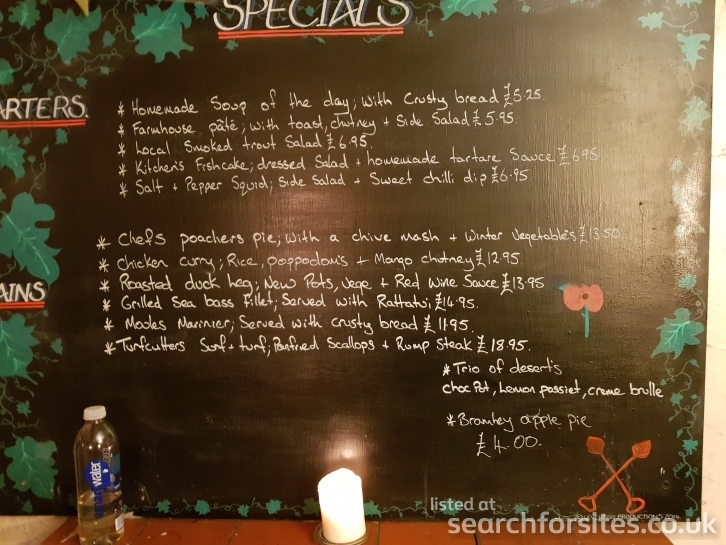 SPECIALS
ARTERS
* Homemade Soup of the day; with Crusty bread £5.25
* Farmhouse pâté; with toast, chutney + Side Salad £5.95
* Local Smoked trout Salad £6.95
* Kitchen's Fishcake; dressed Salad + homemade tartare Sauce £6.95
* Salt + Pepper Squid; Side Salad + Sweet chilli dip £6.95
* Chefs poachers pie; with a chive mash + Winter Vegetables £13.50
* Chicken curry; Rice, poppodom's + Mango chutney £12.95
* Roasted duck leg; New Pots, vege + Red Wine Sauce £13.95
AINS
* Grilled Sea bass Fillet; Served with Rattatwi £14.95.
* Moules Marinier; Served with crusty bread £11.95
* Turfcutters Surf + turf; Panfried Scallops + Rump Steak £18.95.
* Trio of desert's
choc Pot, Lemon possiet, creme brulle
* Bramley apple pie
£4.00.
water
listed at
searchforsites.co.uk